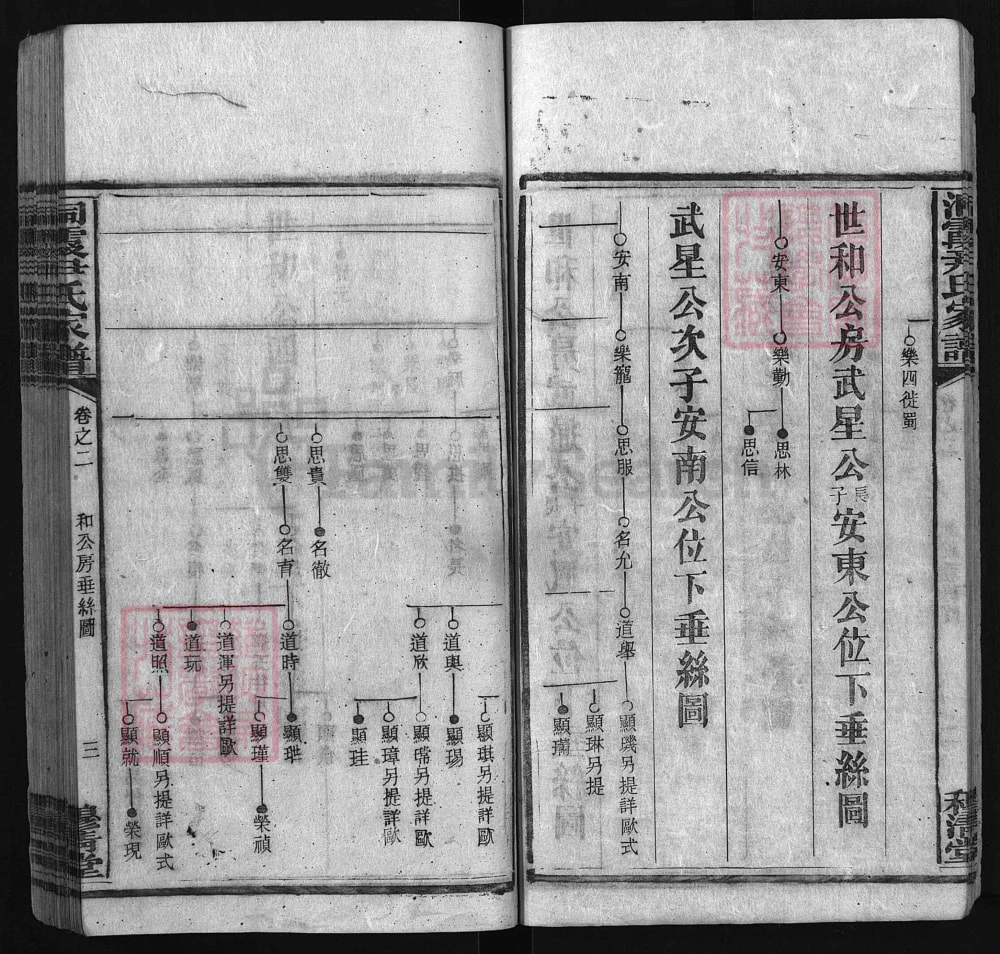 尹氏家譜
樂四徙蜀
世和公房武星公長子安東公位下垂絲圖
安東
樂勤
思林
思信
武星公次子安南公位下垂絲圖
安南
樂龍
思服
名允
道舉
顯璣另提詳歐式
顯琳另提
顯璹
顯琪另提詳歐
道輿
顯瑒
道欣
顯瑺另提詳歐
顯璋另提詳歐
顯珪
思貴
名徹
思雙
名育
道時
顯琪
顯瑾
榮禎
道渾另提詳歐
道玩
道照
顯順另提詳歐式
顯就
榮現
尹氏家譜
卷之二
和公房垂絲圖
三